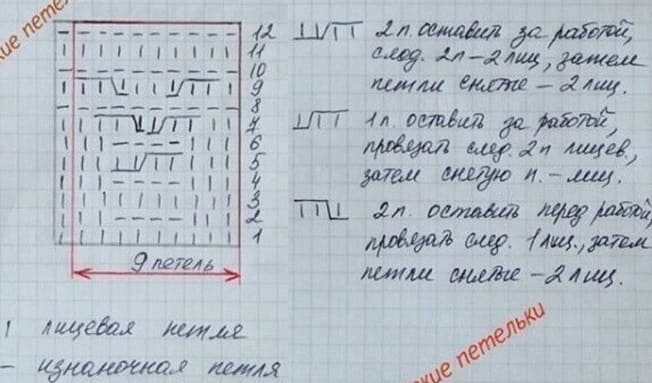 кие петельки
12
11
10
9
8
7
6
5
4
3
2
1
9 петель
| лицевая петля
– изнаночная петля
2 п. оставить за работой,
след. 2п – 2 лиц, затем
петли снятые – 2 лиц.
1 п. оставить за работой,
провязать след. 2п лицев.,
затем снятую п. – лиц.
2 п. оставить перед работой,
провязать след. 1 лиц., затем
петли снятые – 2 лиц.
ские петельки